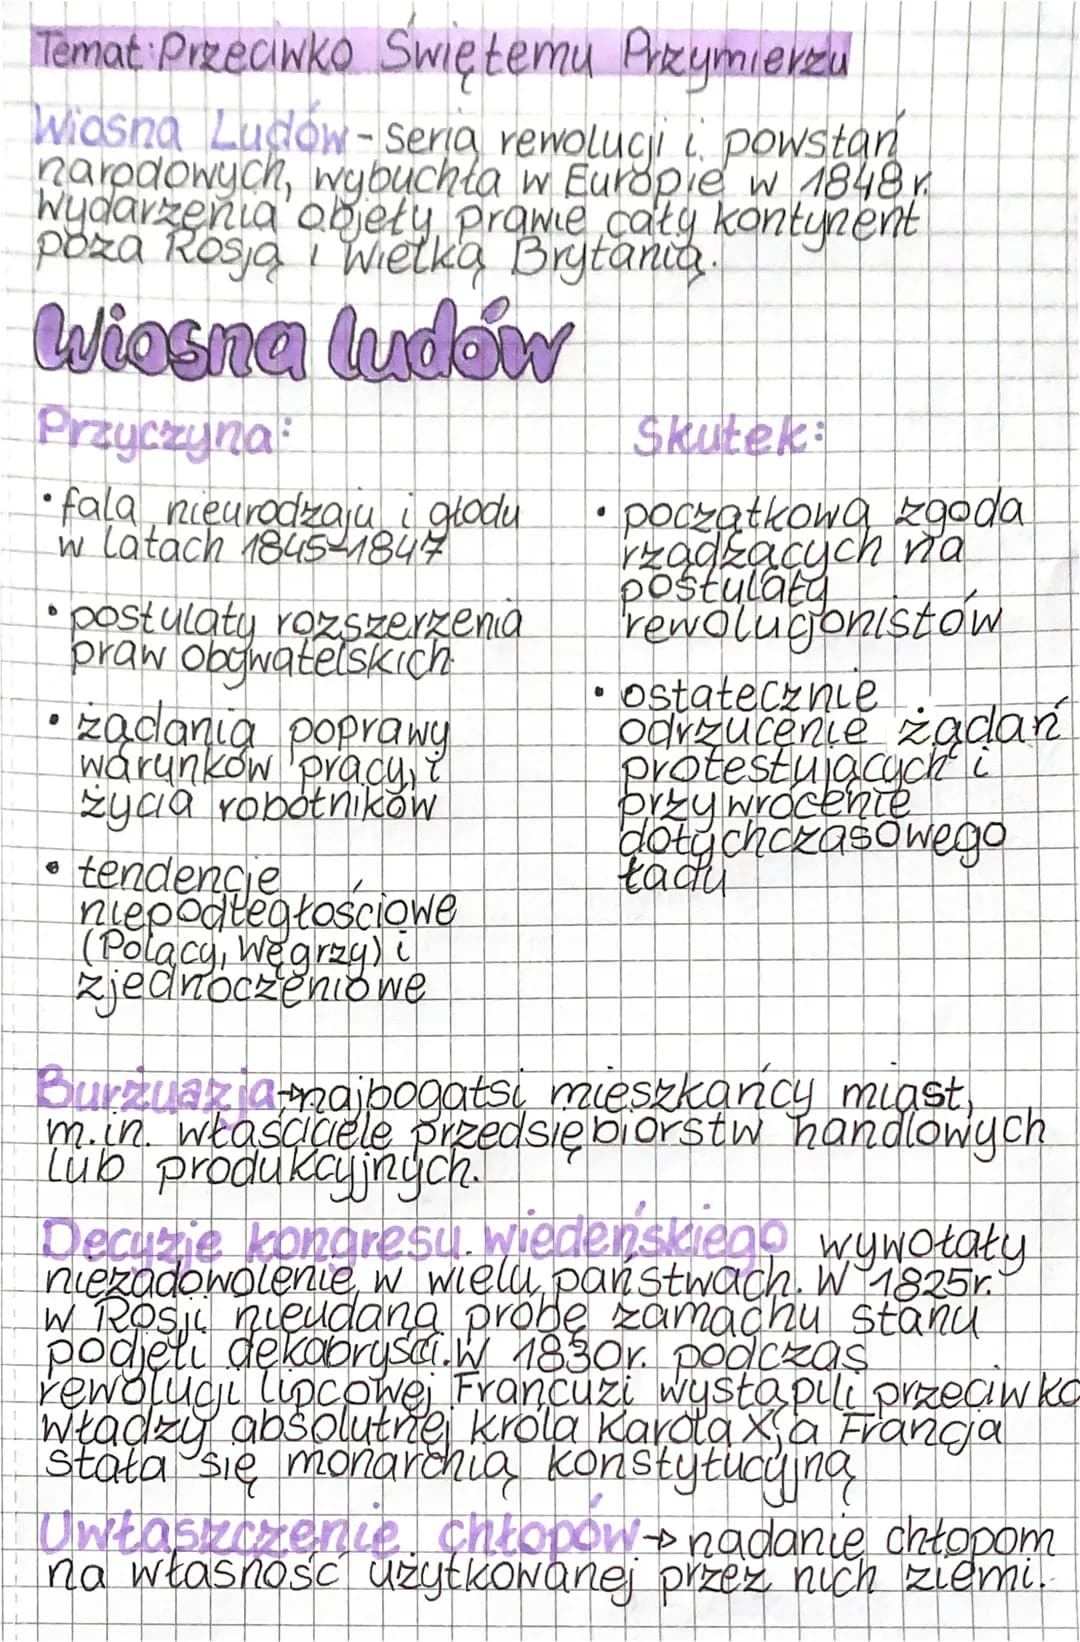 Temat: Przeciwko Świętemu Przymierzu
Wiosna Ludów - seria rewolucji i powstań
narodowych, wybuchła w Europie w 1848 r.
Wydarzenia objęły prawie cały kontynent
poza Rosją i Wielką Brytanią.
Wiosna ludów
Przyczyna:
• fala nieurodzaju i głodu
w latach 1845-1847
• postulaty rozszerzenia
praw obywatelskich
• żądania poprawy
warunków pracy i
życia robotników
• tendencje
niepodległościowe
(Polacy, Węgrzy) i
zjednoczeniowe
Skutek:
• początkowa zgoda
rządzących na
postulaty
rewolucjonistów
• ostatecznie
odrzucenie żądań
protestujących i
przywrócenie
dotychczasowego
ładu
Burżuazja → najbogatsi mieszkańcy miast,
m.in. właściciele przedsiębiorstw handlowych
lub produkcyjnych.
Decyzje kongresu wiedeńskiego wywołały
niezadowolenie w wielu państwach. W 1825r.
w Rosji nieudaną próbę zamachu stanu
podjęli dekabryści. W 1830r. podczas
rewolucji lipcowej Francuzi wystąpili przeciwko
władzy absolutnej króla Karola X, a Francja
stała się monarchią konstytucyjną
Uwłaszczenie chłopów → nadanie chłopom
na własność użytkowanej przez nich ziemi.